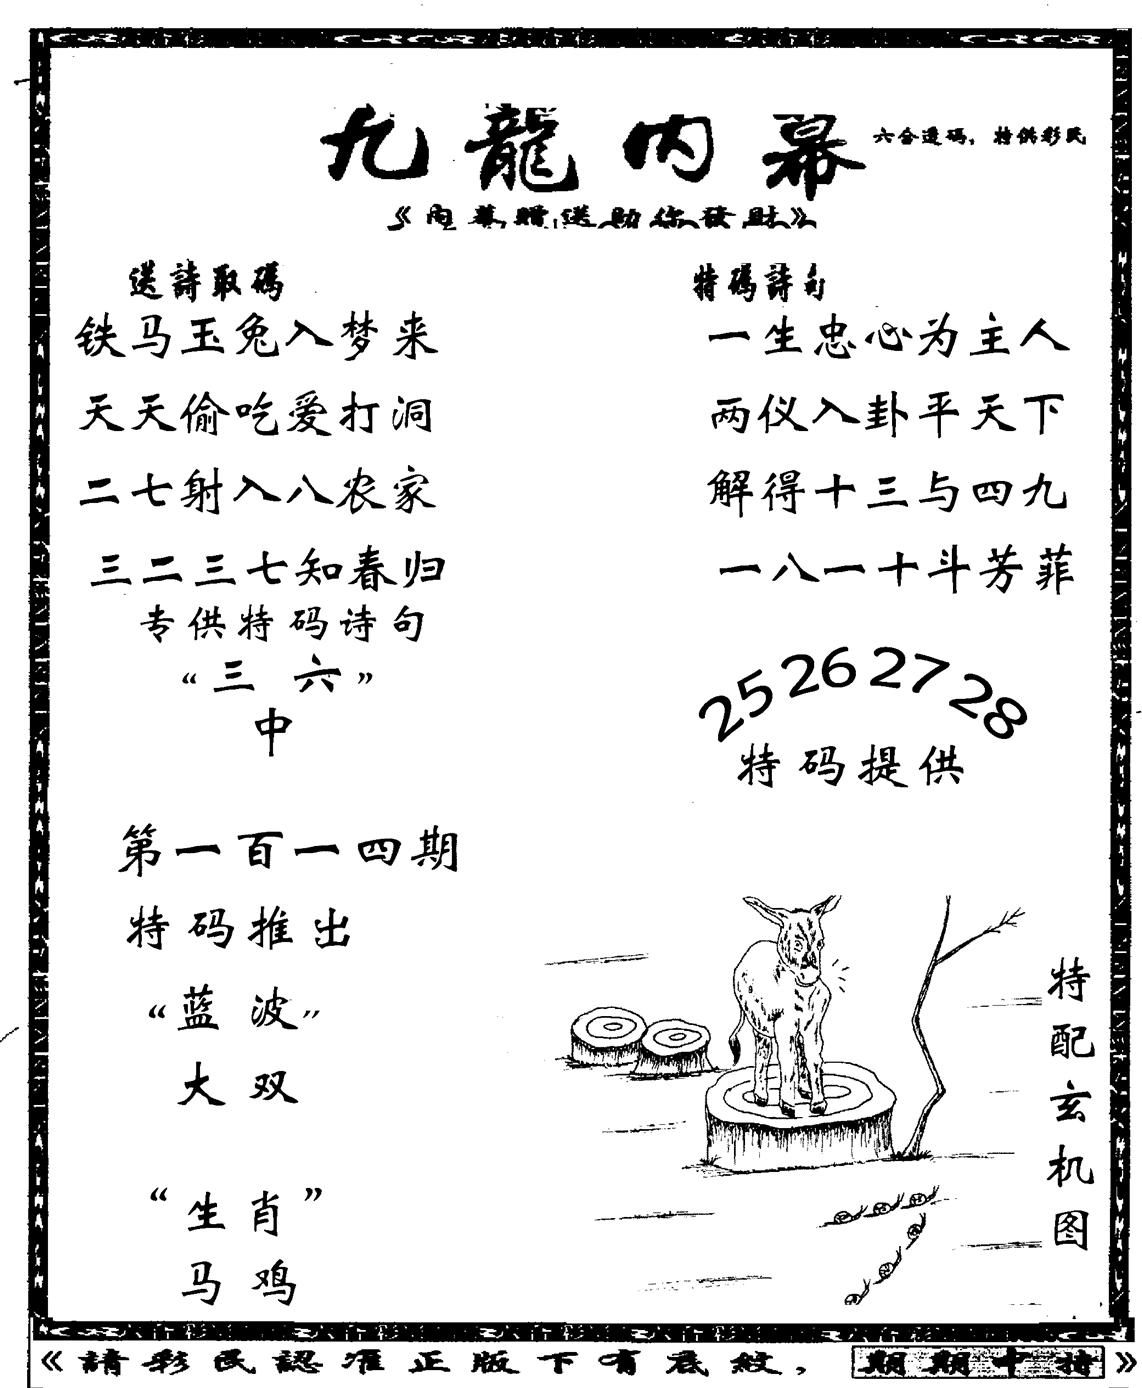 九龍内幕
六合透碼，特供彩民
《内幕贈送助你發財》
送詩取碼
铁马玉兔入梦来
天天偷吃爱打洞
二七射入八农家
三二三七知春归
专供特码诗句
“三 六”
中
特碼詩句
一生忠心为主人
两仪入卦平天下
解得十三与四九
一八一十斗芳菲
25 26 27 28
特码提供
第一百一四期
特码推出
“蓝 波”
大 双
“生 肖”
马 鸡
特配玄机图
《請彩民認准正版下有底紋，期期中特》